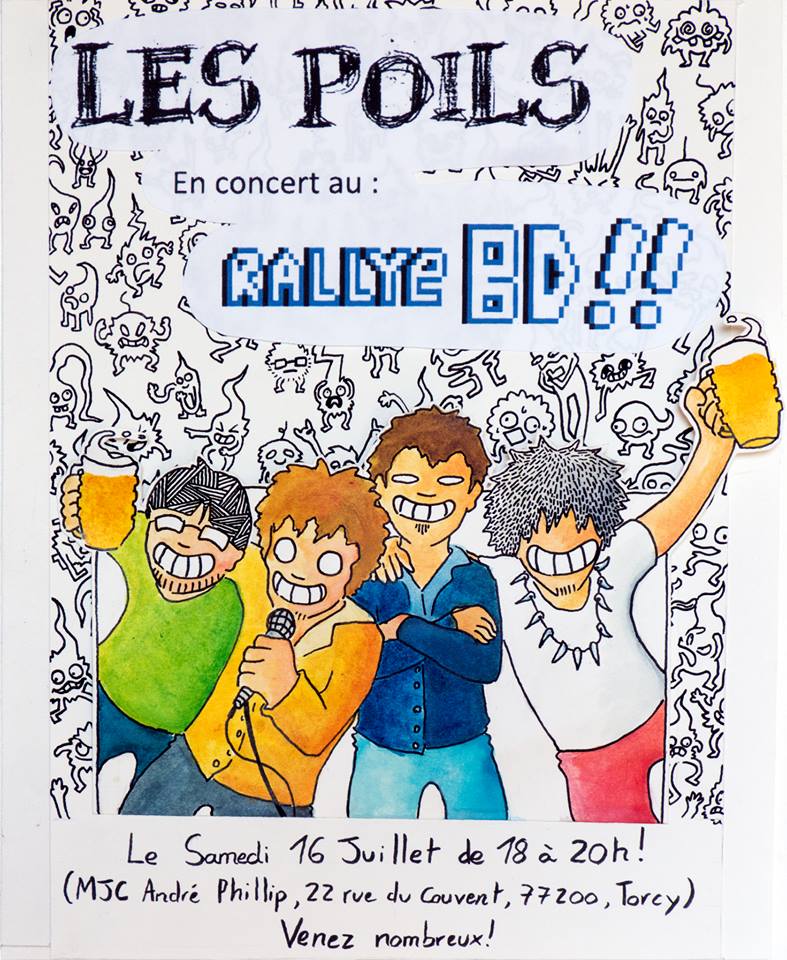 LES POILS
En concert au :
RALLYE BD!!
Le Samedi 16 Juillet de 18 à 20h!
(MJC André Phillip, 22 rue du Couvent, 77200, Torcy)
Venez nombreux!